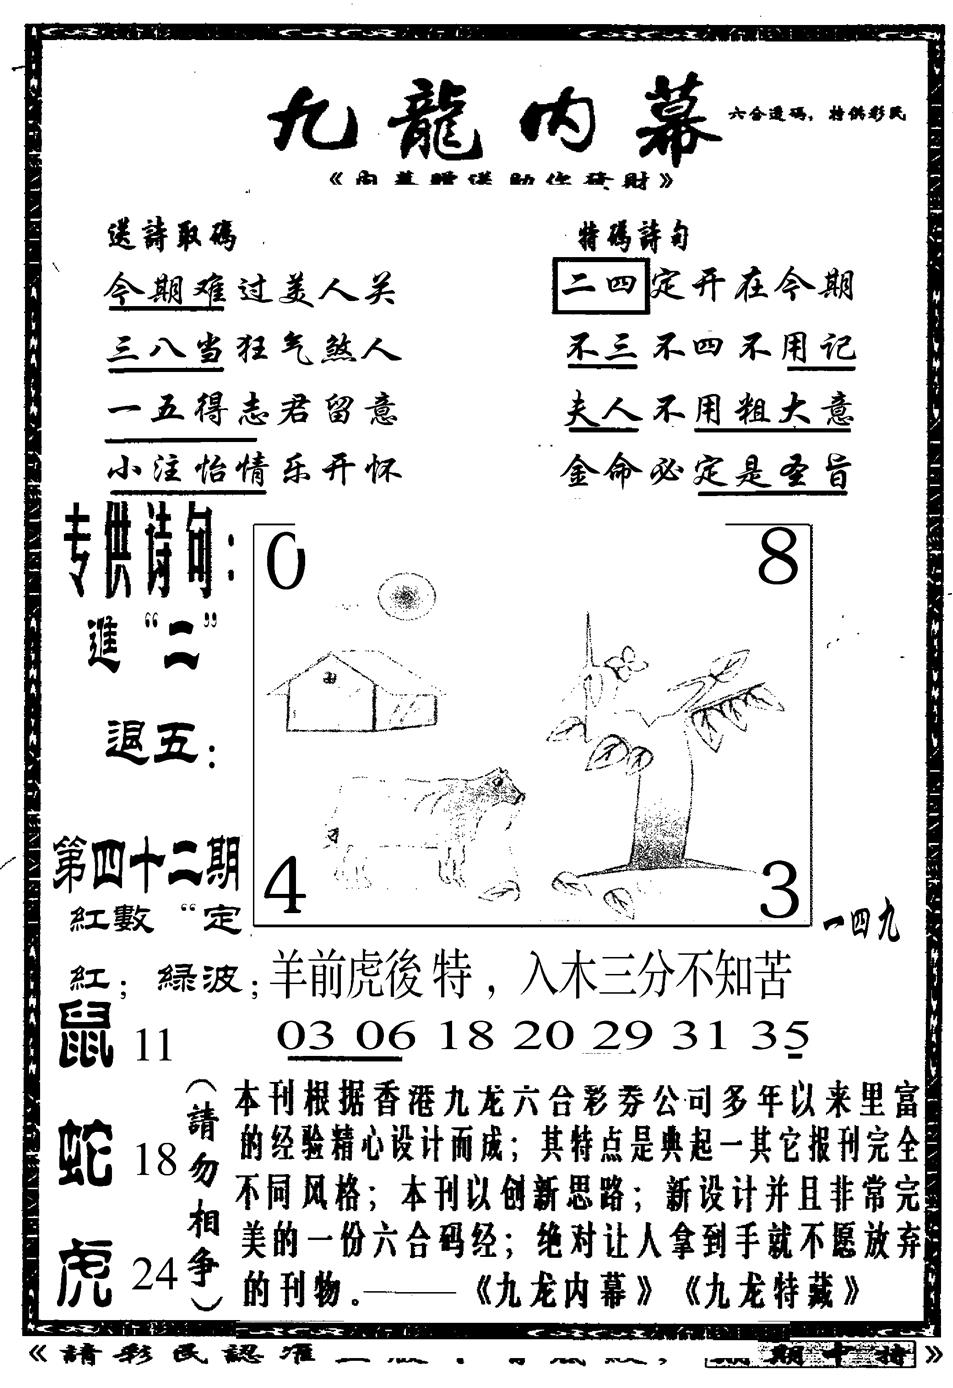 九龍内幕
六合透码，特供彩民
《内幕赠送助你發財》
送詩取碼
今期难过美人关
三八当狂气煞人
一五得志君留意
小注怡情乐开怀
特碼詩句
二四定开在今期
不三不四不用记
夫人不用粗大意
金命必定是圣旨
专供诗句：
進“二”
退五：
第四十二期
紅數“定
紅；綠波；
0
8
4
3
一四九
羊前虎後特，入木三分不知苦
03 06 18 20 29 31 35
鼠 11
蛇 18
虎 24
（請勿相争）
本刊根据香港九龙六合彩券公司多年以来里富
的经验精心设计而成；其特点是典起一其它报刊完全
不同风格；本刊以创新思路；新设计并且非常完
美的一份六合码经；绝对让人拿到手就不愿放弃
的刊物。——《九龙内幕》《九龙特藏》
《請彩民認准